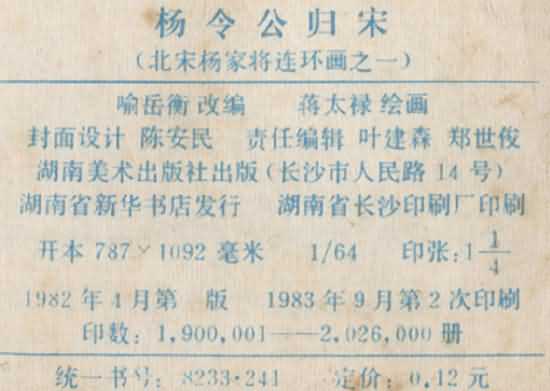 杨令公归宋
(北宋杨家将连环画之一)
喻岳衡 改编 蒋太禄 绘画
封面设计 陈安民 责任编辑 叶建森 郑世俊
湖南美术出版社出版(长沙市人民路14号)
湖南省新华书店发行 湖南省长沙印刷厂印刷
开本 787×1092 毫米 1/64 印张:1 1/4
1982年4月第 版 1983年9月第2次印刷
印数:1,900,001——2,026,000 册
统一书号:8233·241 定价:0.12元